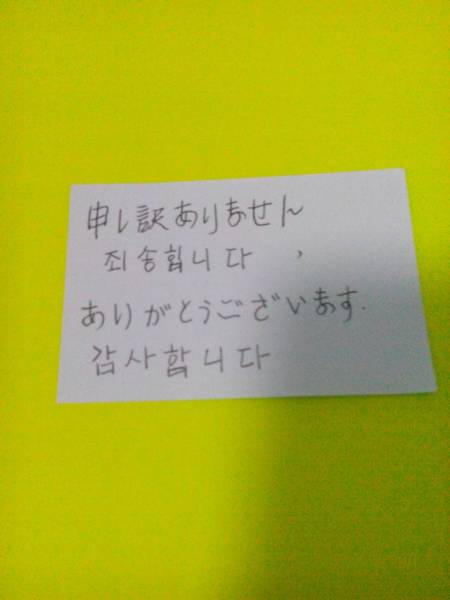 申し訳ありません
죄송합니다,
ありがとうございます.
감사합니다